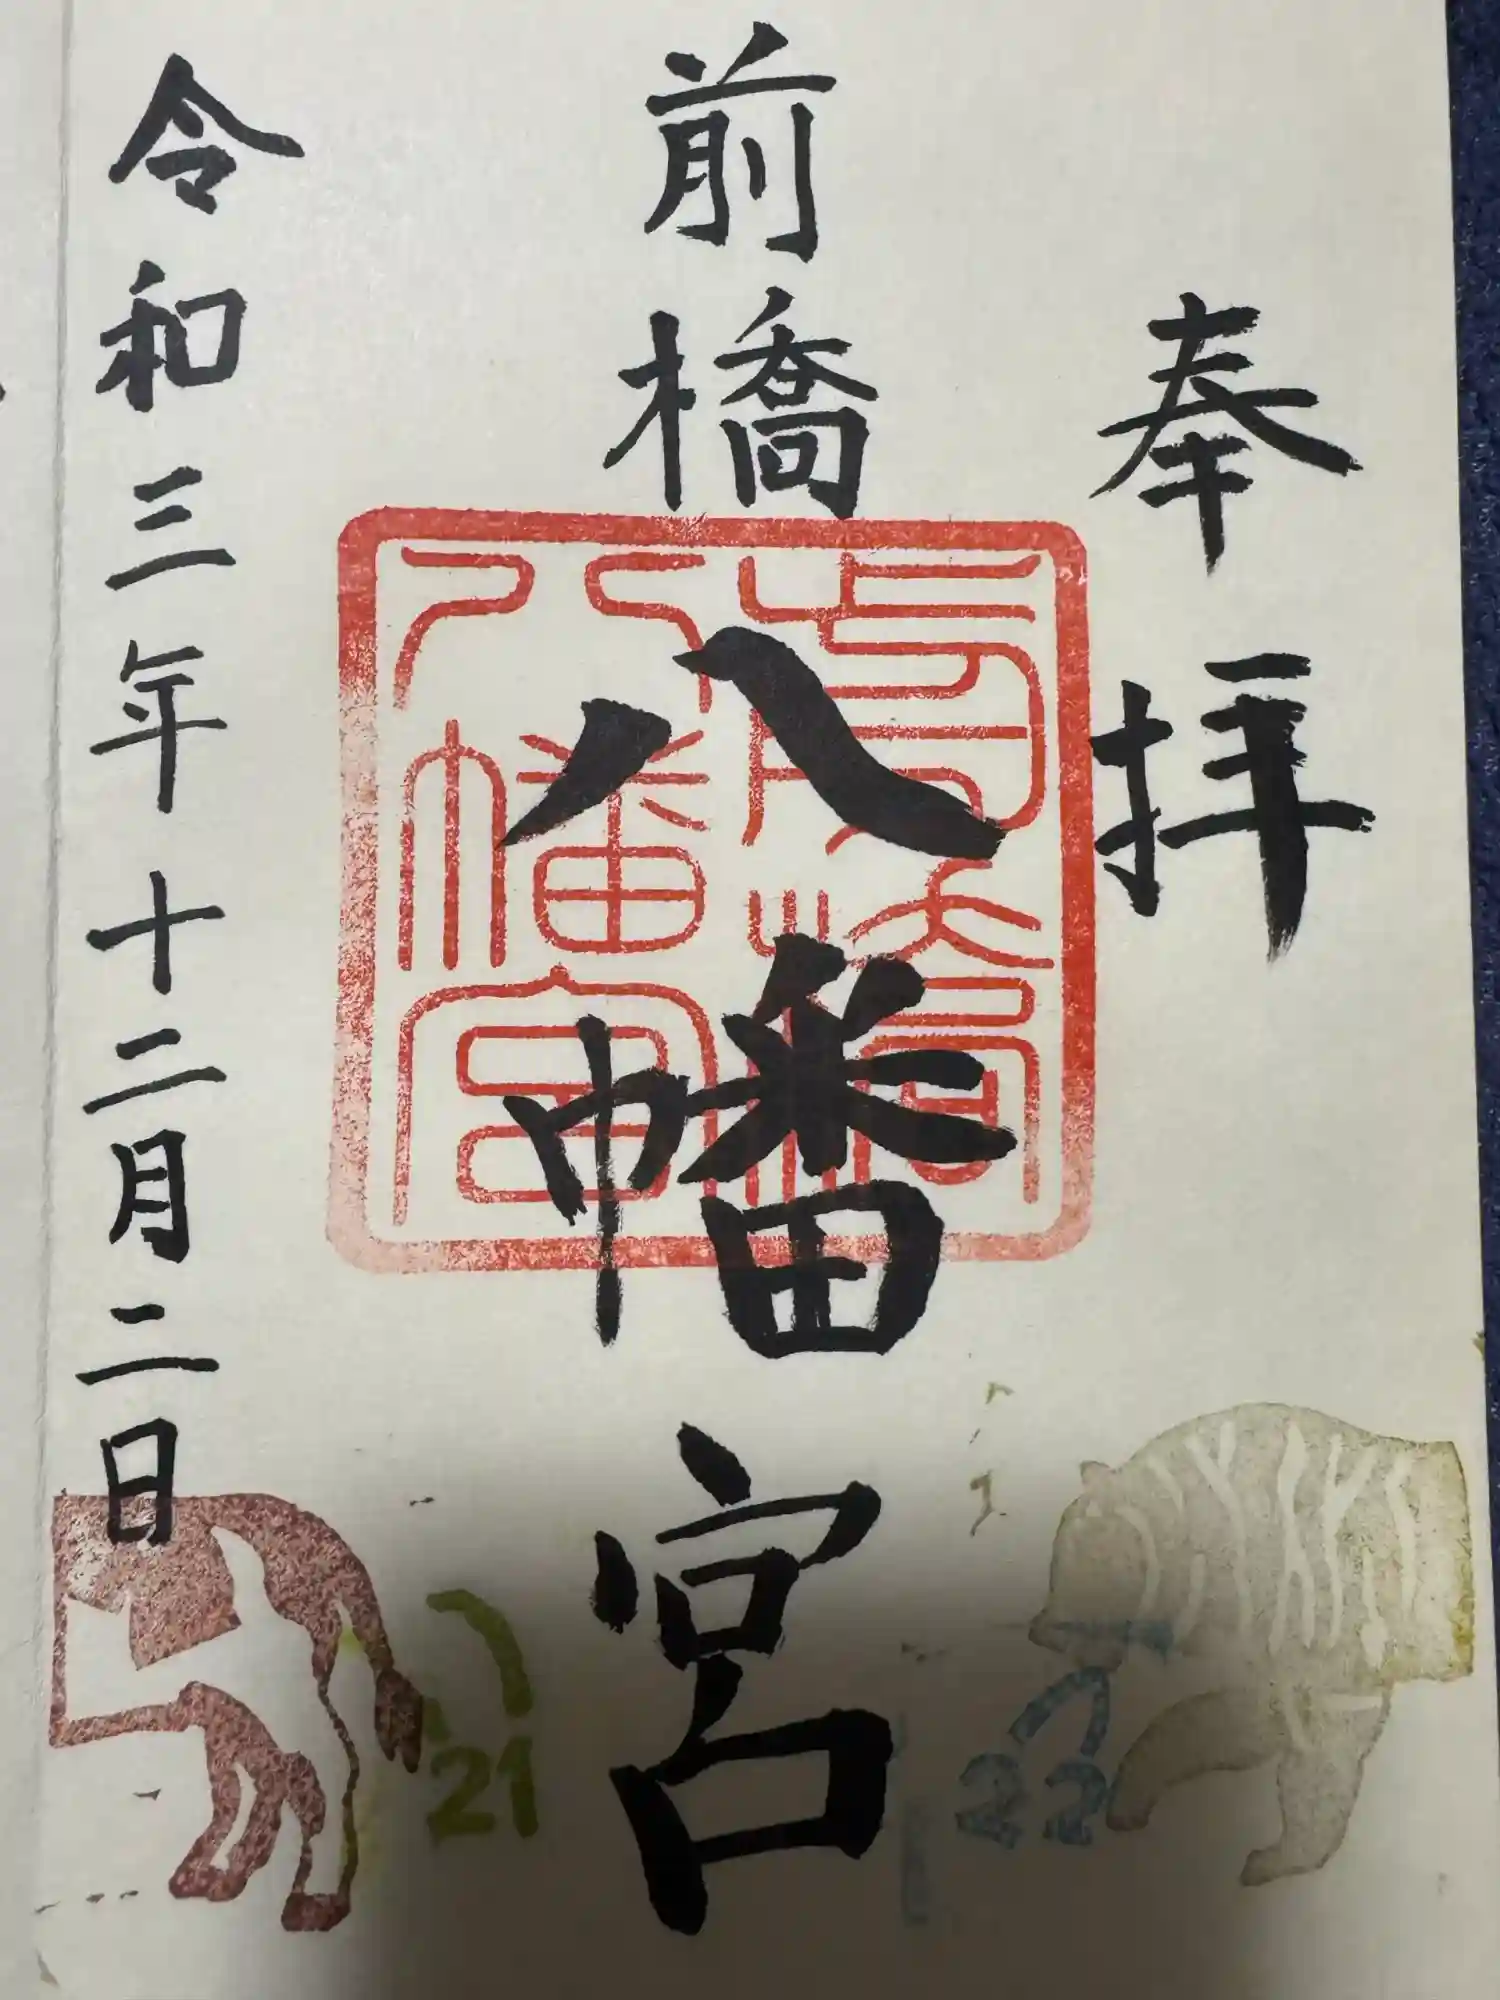 奉拝
前橋
八幡宮
前橋
八幡宮
令和三年十二月二日
22
21